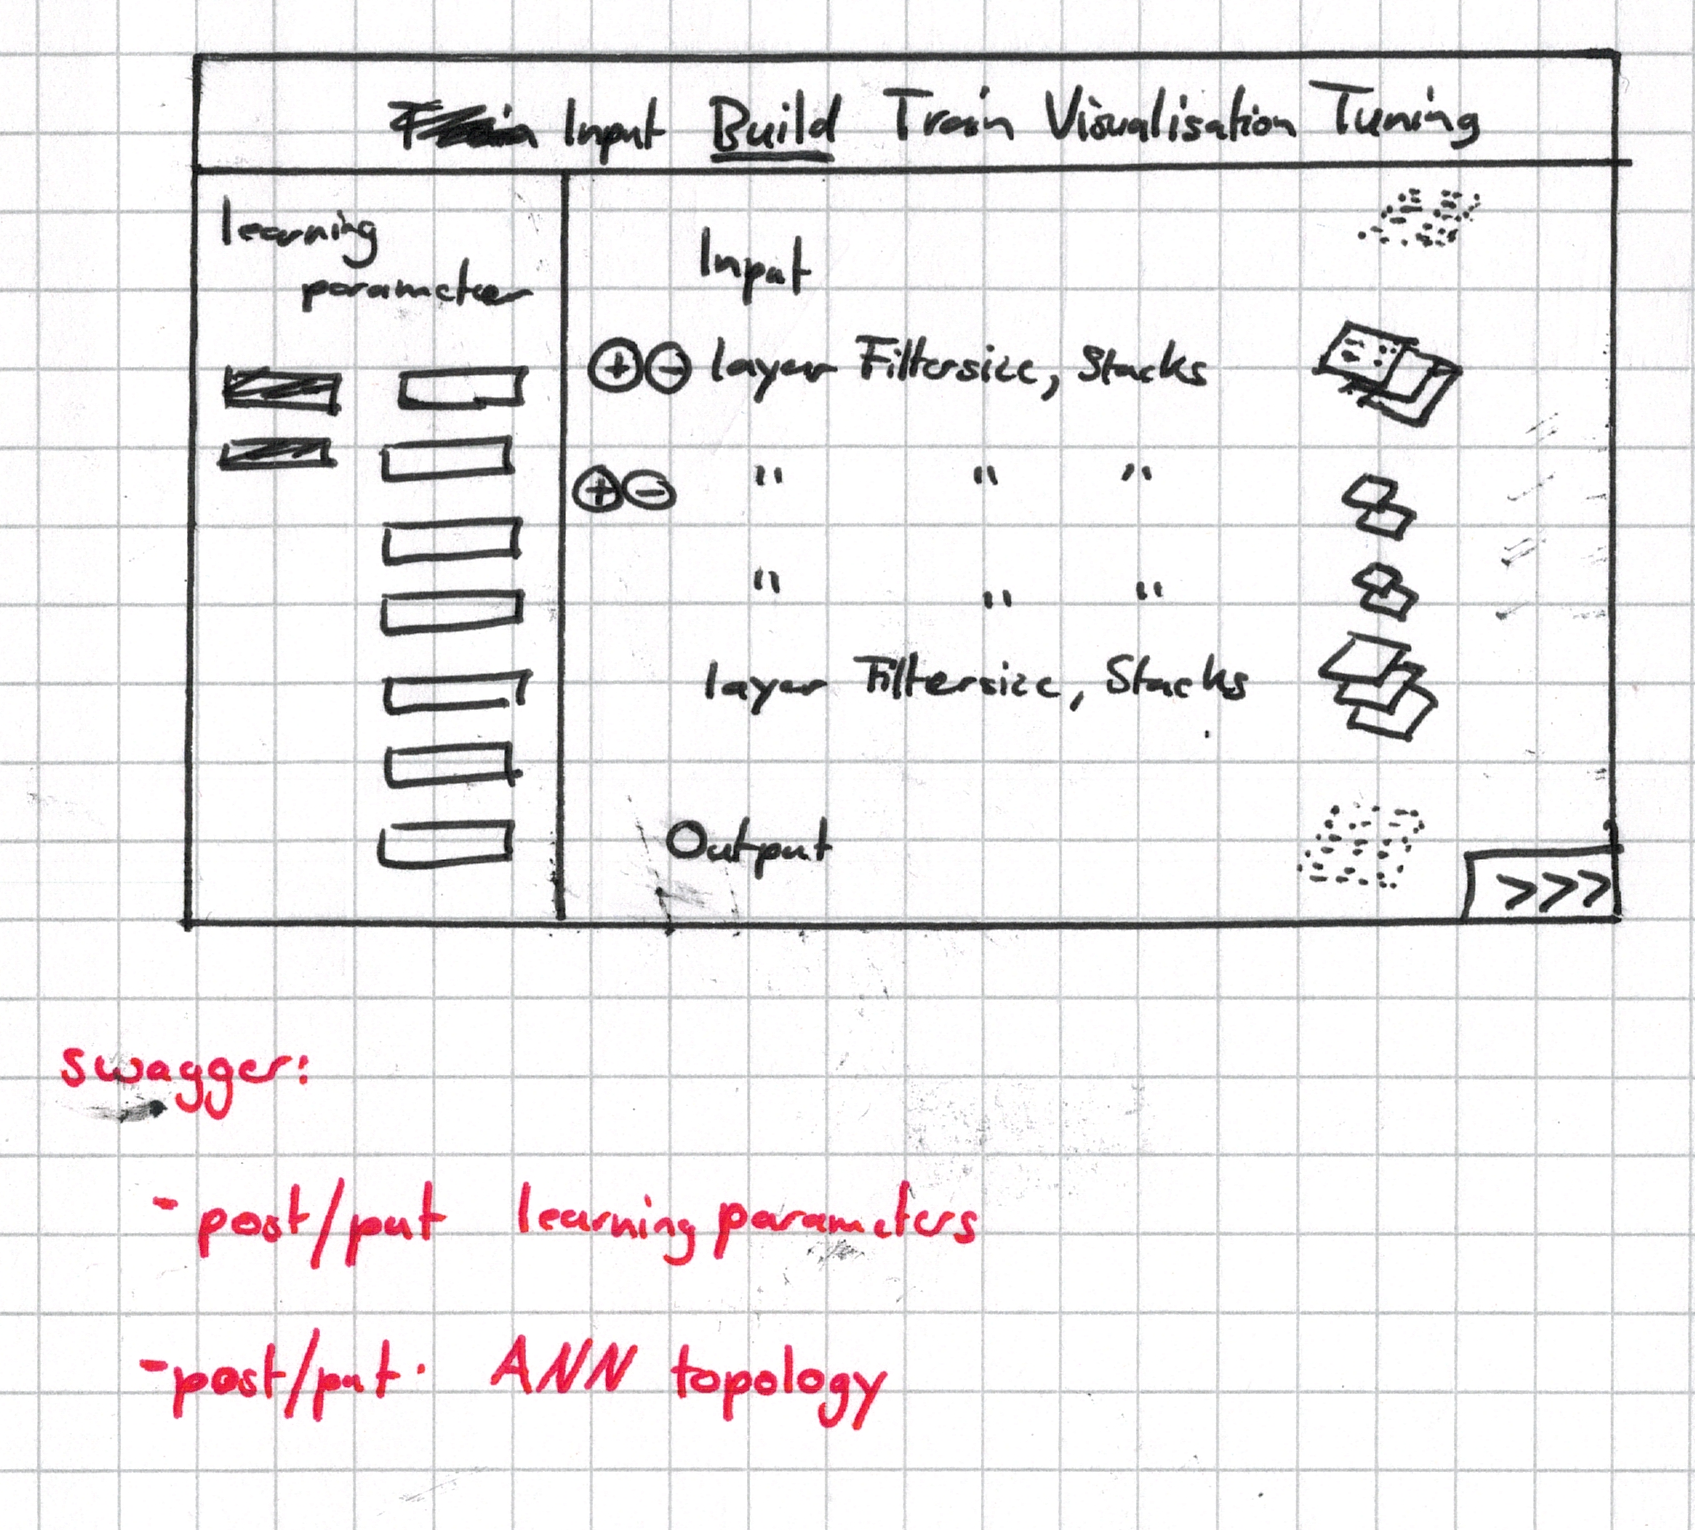 Input Build Train Visualisation Tuning
learning
parameter
Input
+ - layer Filtersize, Stacks
+ - " " "
" " "
layer Filtersize, Stacks
Output
>>>
swagger:
- post/put learning parameters
- post/put. ANN topology